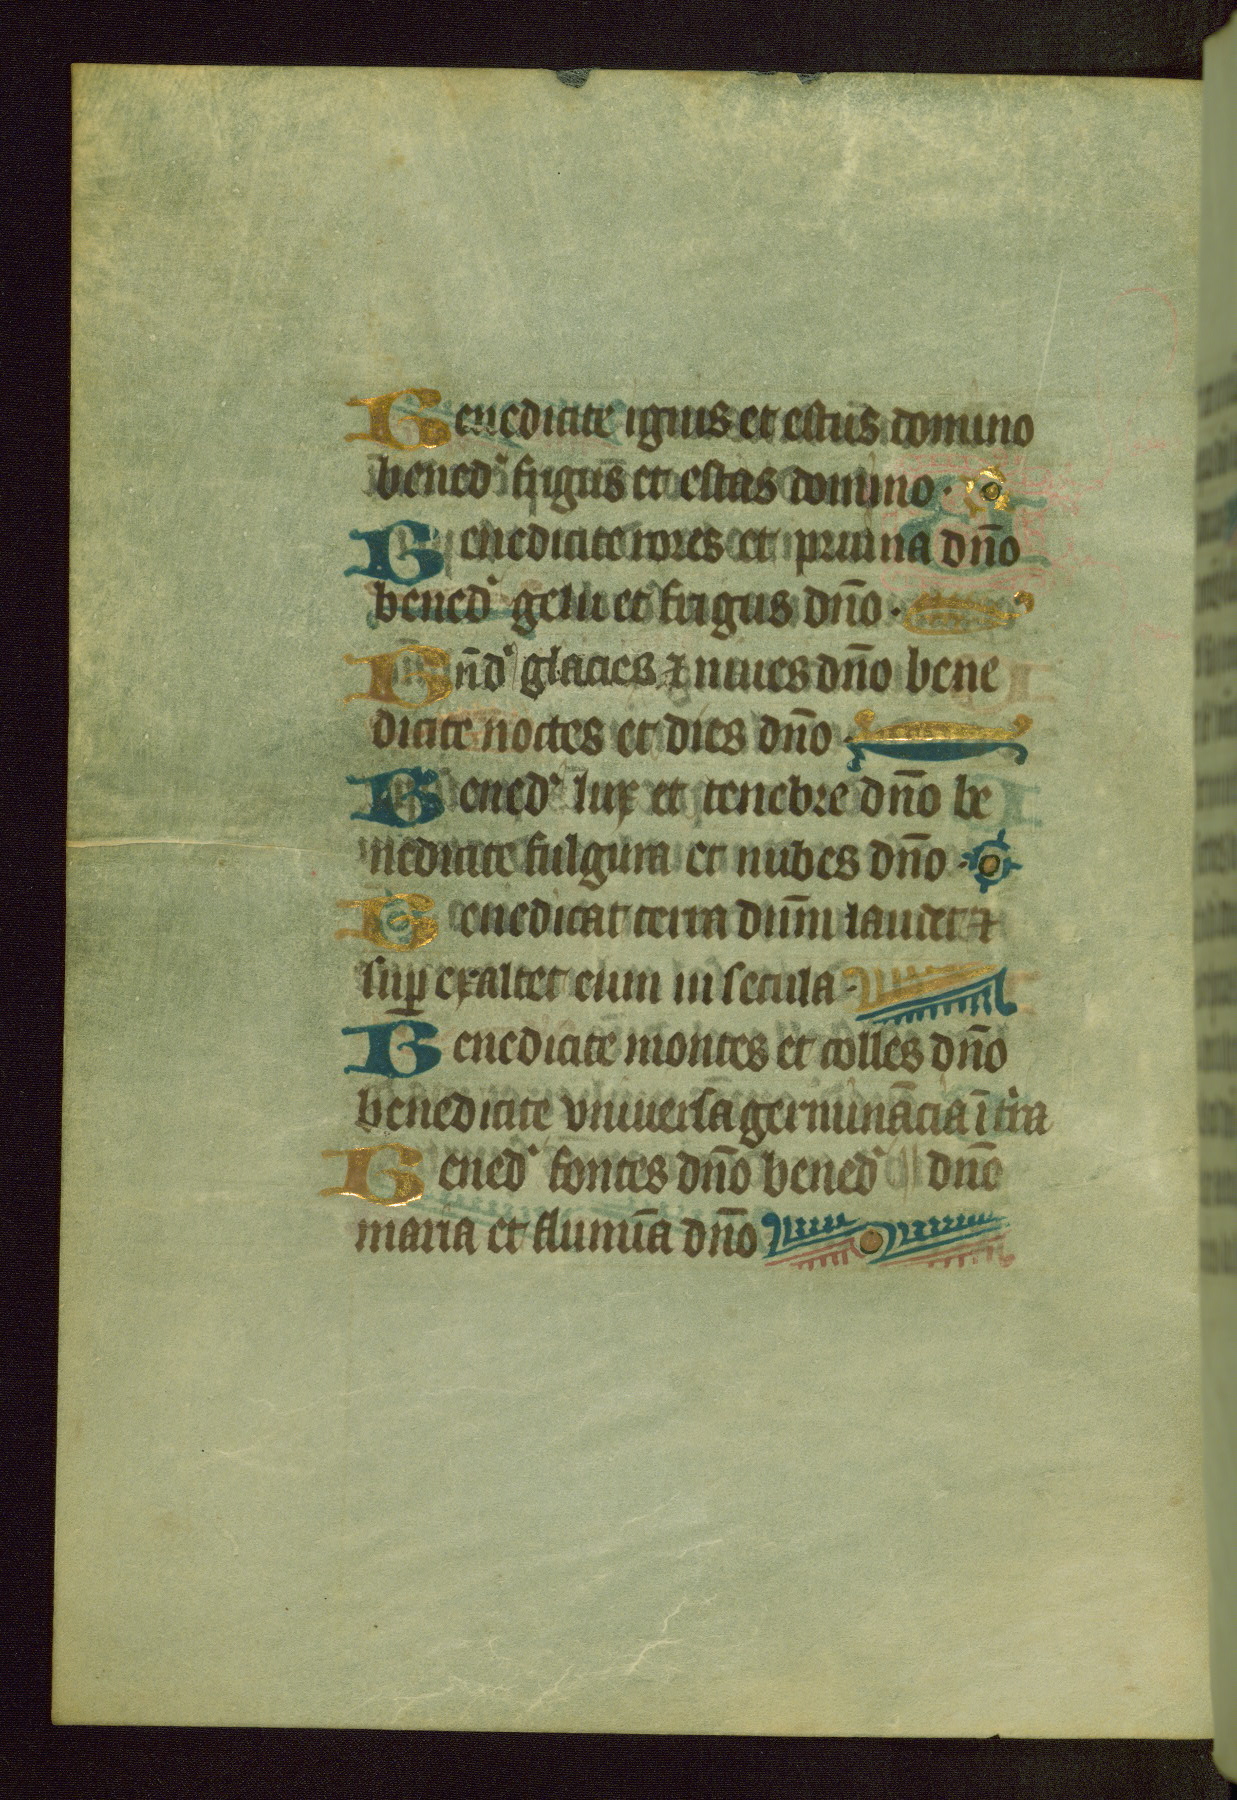 Benedicite ignis et estus domino
bened' frigus et estas domino .
Benedicite rores et pruina dño
bened' gelu et frigus dño .
Bñd' glacies ⁊ niues dño bene
dicite noctes et dies dño .
Bened' lux et tenebre dño be
nedicite fulgura et nubes dño .
Benedicat terra dūm laudet ⁊
suꝑ exaltet eum in secula .
Benedicite montes et colles dño
benedicite vniuersa germinācia ī t'ra
Bened' fontes dño bened'
maria et flumīa dño